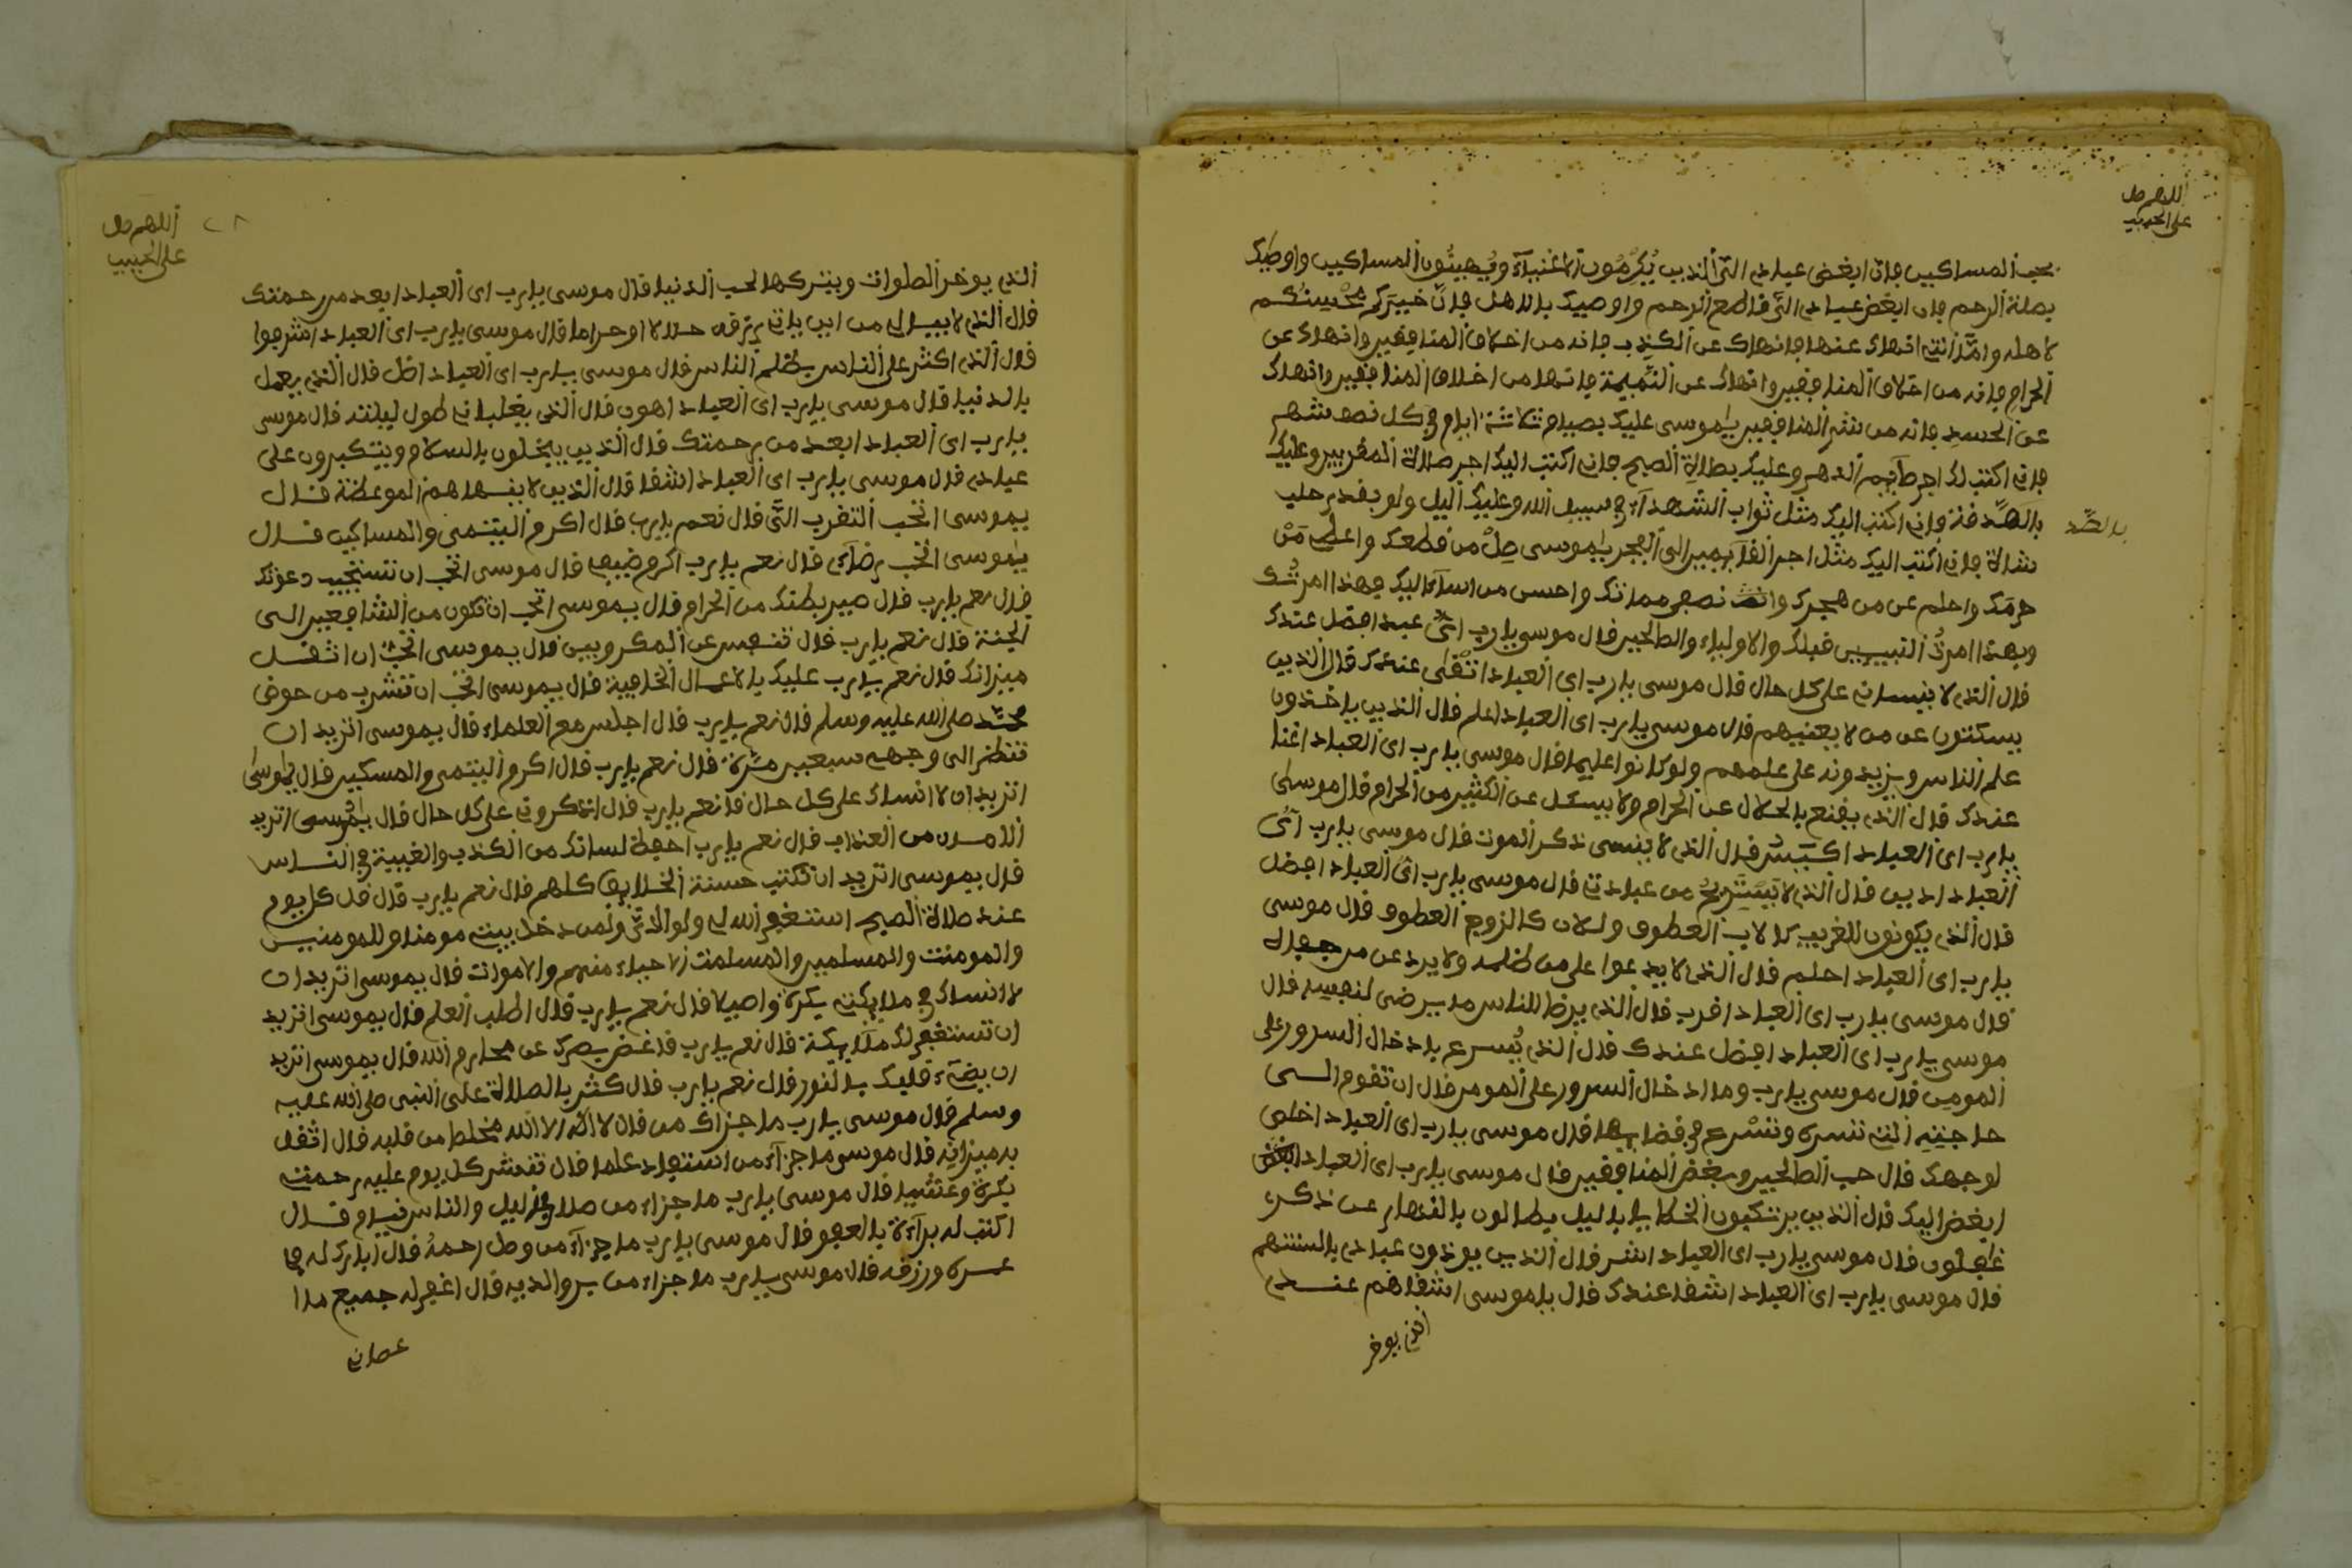 اللهم صل
على الحبيب
بحب المساكين فان ابغض عبادي التي الذين يُكرِمُون الاغنياءَ ويُهِينُون المساكين واوصيك
بصلة الرحم فان ابغض عبادي التي قاطع الرحم واوصيك بالاهل فان خيركم محسنكم
لاهله وامّا التي انهاك عنها فانهاك عن الكذب فانه من اخلاق المنافقين وانهاك عن
الحرام فانه من اخلاق المنافقين وانهاك عن النميمة فانها من اخلاق المنافقين وانهاك
عن الحسد فانه من شر المنافقين يموسى عليك بصيام ثلاثة ايام في كل نصف شهر
فاني اكتب لك اجر صآيم الدهر وعليك بصلاة الصبح فاني اكتب اليك اجر صلاة المقربين وعليك
بالصّدقة فاني اكتب اليك مثل ثواب الشهدآء في سبيل الله وعليك اليل ولو بقدر حلب
بالصّد
شاة فاني اكتب اليك مثل اجر القآيمين الى الفجر يموسى صِلْ من قطعك واعطي مَنْ
حرمك واحلم عن من هجرك وانصف ممانك واحسن من اسآء اليك فهذا امرتك
وبهذا امرتُ النبيين قبلك والاولياء والصالحين قال موسى يارب ائ عبد افضل عندك
قال الذي لا ينساني على كل حال قال موسى يارب اي العباد اتقى عندك قال الذين
يسكتون عن من لا يعنيهم قال موسى يارب اي العباد اعلم قال الذين ياخذون
علم الناس ويزيدونه على علمهم ولو كانوا عليما قال موسى يارب اي العباد اغنا
عندك قال الذي يقنع بالحلال عن الحرام ولا يسئل عن الكثير من الحرام قال موسى
يارب اي العباد اكيَسُ قال الذي لا ينسى ذكر الموت قال موسى يارب ائ
العباد ادين قال الذي لا يَسْتَرِيحُ من عبادتي قال موسى يارب ائ العباد افضل
قال الذي يكونون للغريب كالاب العطوف ولسلان كالزوج العطوف قال موسى
يارب اي العباد احلم قال الذي لا يدعوا على من ظلمه ولا يرد عن من جهل له
قال موسى يارب اي العباد اقرب قال الذي يرضا للناس ما يرضى لنفسه قال
موسى يارب اي العباد افضل عندك قال الذي يُسرع بادخال السرور على
المومن قال موسى يارب وما ادخال السرور على المومن قال ان تقوم الى
حاجته التي تسره وتسْرع في قضايها قال موسى يارب اي العباد اخلص
لوجهك قال حب الصالحين وبغض المنافقين قال موسى يارب اي العباد ابغض
ابغض اليك قال الذين يرتكبون الخطايا باليل يظالون بالنهار عن ذكري
غٰفلون قال موسى يارب اي العباد اشر قال الذين يوذون عبادي بالسنتهم
قال موسى يارب اي العباد اشقا عندك قال ياموسى اشقاهم عندي
الذي يوخر
اللهم صل
على الحبيب
٢٨
الذي يوخر الصلوات ويتركها لحب الدنيا قال موسى يارب اي العباد ابعد من رحمتك
قال الذي لا يبالي من اين ياتي رزقه حلالا او حراما قال موسى يارب اي العباد اشرهوا
قال الذي اكثر على الناس بظلم الناس قال موسى يارب اي العباد اضل قال الذي يعمل
بالدنيا قال موسى يارب اي العباد اهون قال الذي يغلبا في طول ليلته قال موسى
يارب اي العباد ابعد من رحمتك قال الذين يبخلون بالسلام ويتكبرون على
عبادي قال موسى يارب اي العباد اشقا قال الذين لا ينسا هم الموعظة قال
يموسى اتحب التقرب التي قال نعم يارب قال اكرم اليتمى والمساكين قال
يٰموسى اتحب رضآي قال نعم يارب اكرم ضيفا قال موسى اتحب ان نستجيب دعوتك
قال نعم يارب قال صير بطنك من الحرام قال يموسى اتحب ان تكون من الشافعين الى
الجنة قال نعم يارب قال تنفس عن المكروبين قال يموسى اتحب ان اثقل
ميزانك قال نعم يارب عليك بالاعمال الخافية قال يموسى اتحب ان تشرب من حوض
محمّد صلى الله عليه وسلم قال نعم يارب قال اجلس مع العلماء قال يموسى اتريد ان
تنظر الى وجهي سبعين مرّة قال نعم يارب قال اكرم اليتمى والمسكين قال يموسى
اتريد ان لا انساك على كل حال قا نعم يارب قال اذكروني على كل حال قال يٰموسى اتريد
الامن من العذاب قال نعم يارب احفظ لسانك من الكذب والغيبة في الناس
قال يموسى اتريد ان نكتب حسنة الخلايق كلهم قال نعم يارب قال قل كل يوم
عند صلاة الصبح استغفر الله لي ولوالديّ ولمن دخل بيتي مومنا وللمومنين
والمومنت والمسلمين والمسلمت الاحياء منهم والاموات قال يموسى اتريد ان
لا انساك في ملايكتي بكرة واصيلا قال نعم يارب قال اطلب العلم قال يموسى اتريد
ان تستغفر لك ملآيكة قال نعم يارب قا غض بصرك عن محارم الله قال يموسى اتريد
ان يضيء قلبك بالنور قال نعم يارب قال كثر بالصلاة على النبى صلى الله عليه
وسلم قال موسى يارب ما جزاك من قال لا الٰه الا الله مخلصا من قلبه قال اثقل
به ميزانه قال موسى ما جزآء من استفاد علما قال تغشر كل يوم عليه رحمتي
بكرة وعشيا قال موسى يارب ما جزاء من صلا في اليل والناس نيام قال
اكتب له برآءة بالعفو قال موسى يارب ما جزآء من وصل رحمهُ قال ابارك له في
عمره ورزقه قال موسى يارب ما جزاء من بر والديه قال اغفر له جميع ما
عصاني